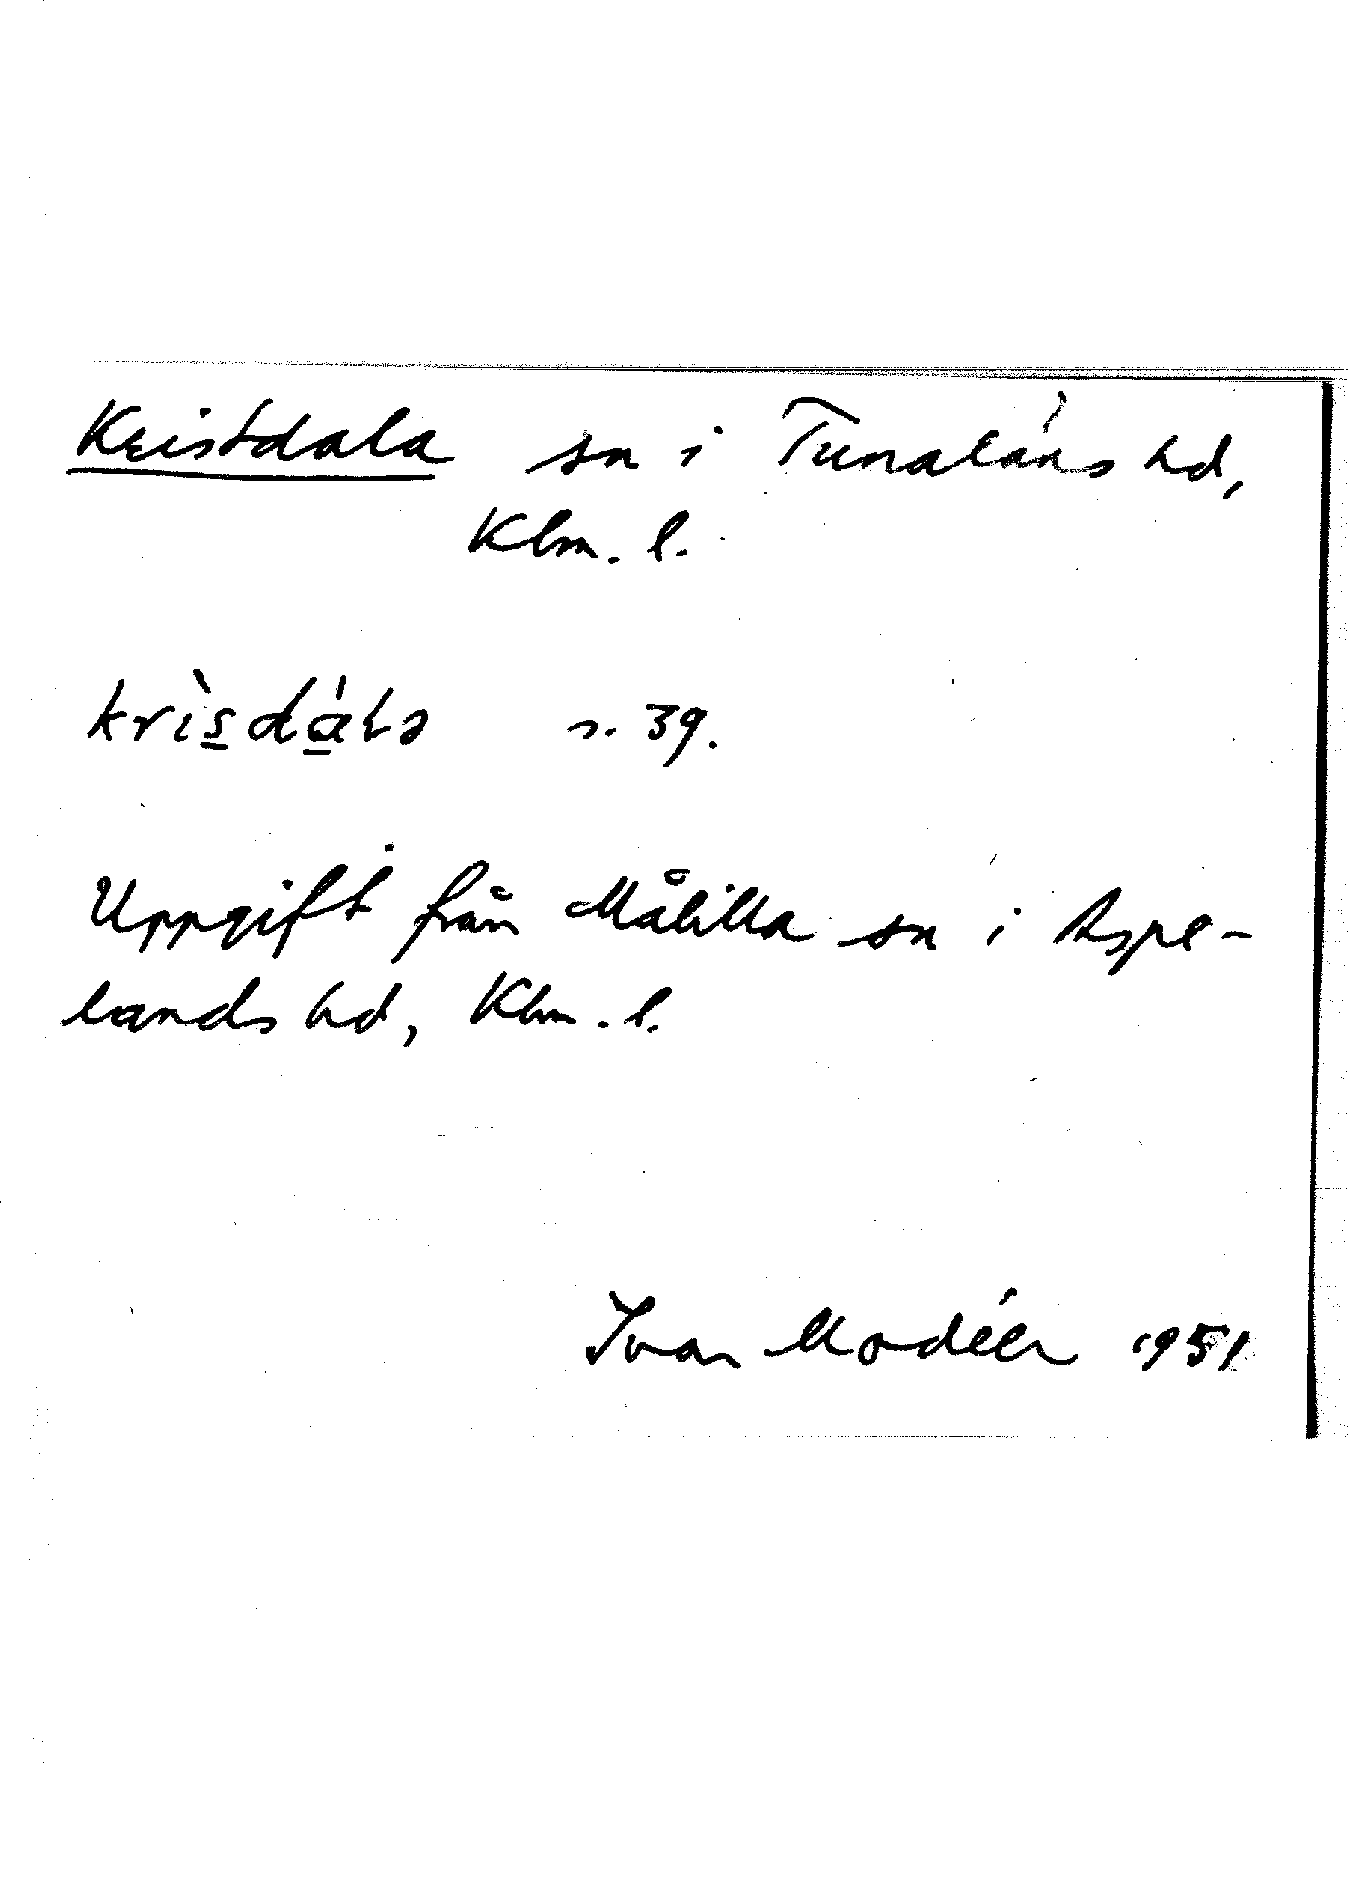 Kristdala sn i Tunaläns hd,
Klm. l.
krìs̲dá̲lə s. 39.
Uppgift från Målilla sn i Aspe-
lands hd, Klm. l.
Ivar Modéer 1951